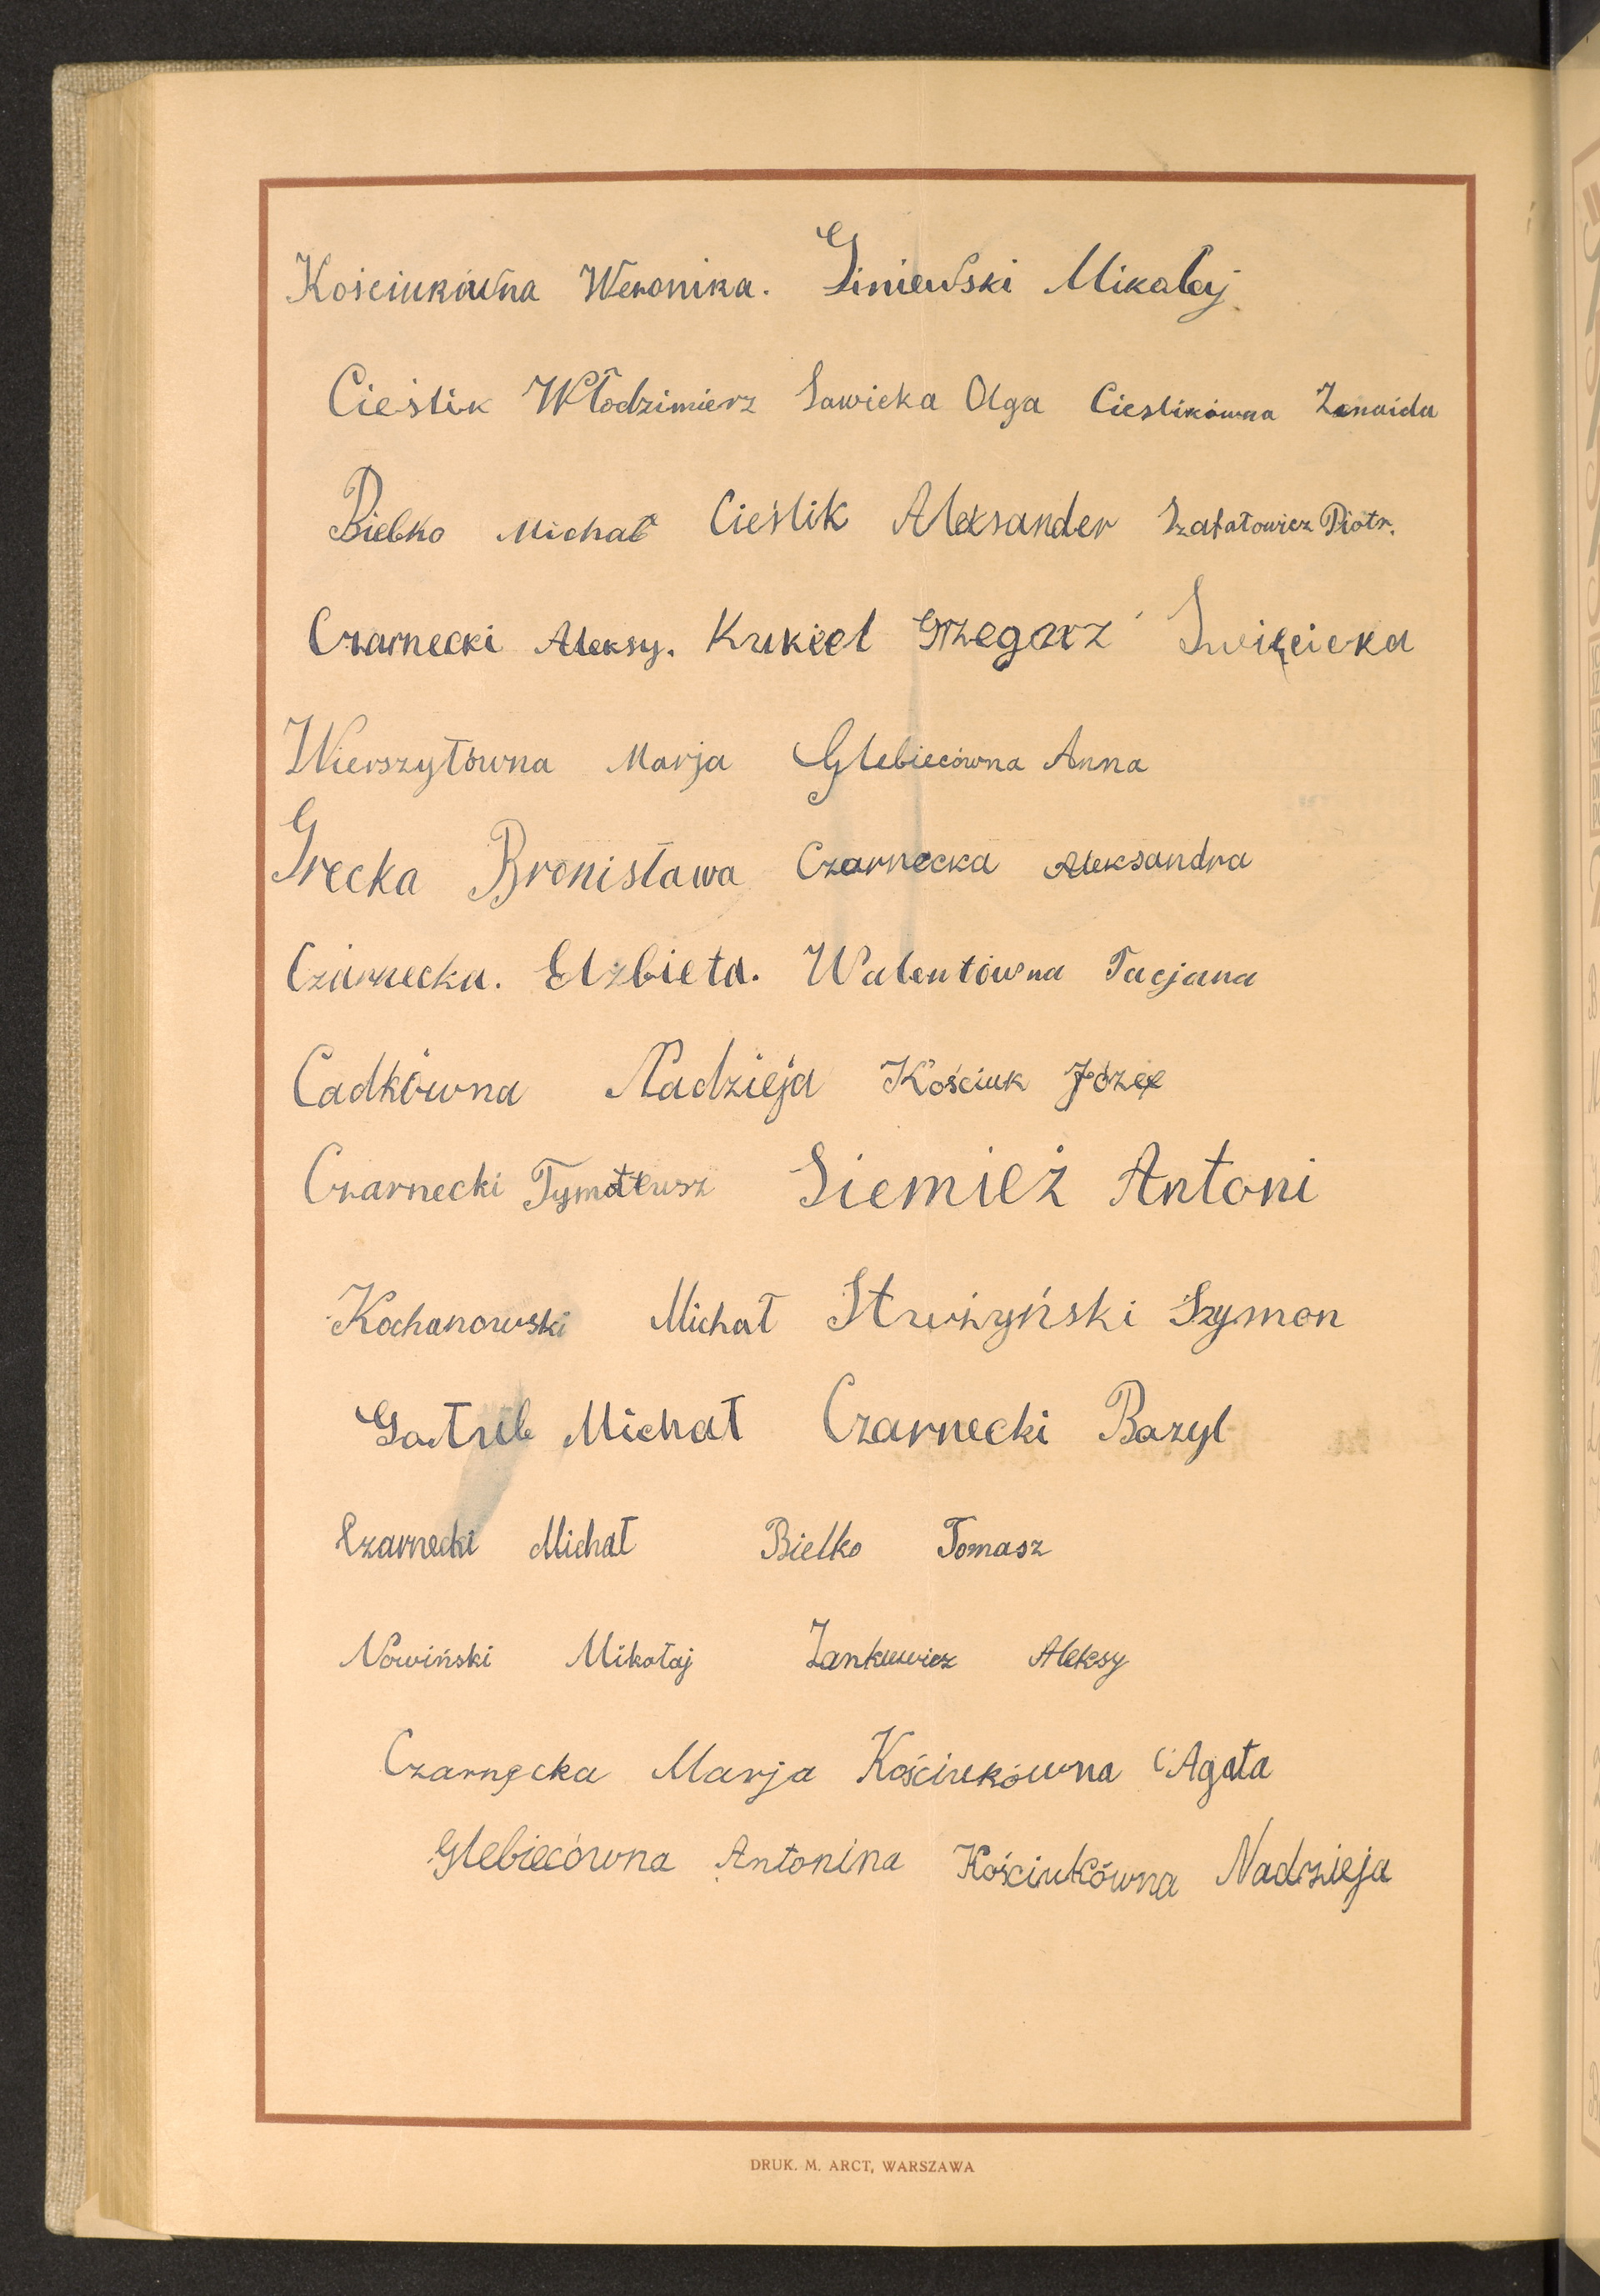 Kościukówna Weronika. Giniewski Mikałaj
Cieślik Włodzimierz Sawicka Olga Cieslikówna Zenaida
Bielko Michał Cieślik Aleksander Szafałowicz Piotr.
Czarnecki Aleksy. Kukieł Grzegorz Święcicka
Wierszyłówna Marja Glebiecówna Anna
Grecka Bronisława Czarnecka Aleksandra
Czarnecka. Elżbieta. Walentówna Tacjana
Cadkówna Nadzieja Kościuk Józef
Czarnecki Tymoteusz Siemież Antoni
Kochanowski Michał Szymon
Gołub Michał Czarnecki Bazyl
Czarnecki Michał Bielko Tomasz
Nowiński Mikołaj Aleksy
Czarnecka Marja Kościukówna Agata
Glebiecówna Antonina Kościukówna Nadzieja
DRUK. M. ARCT, WARSZAWA